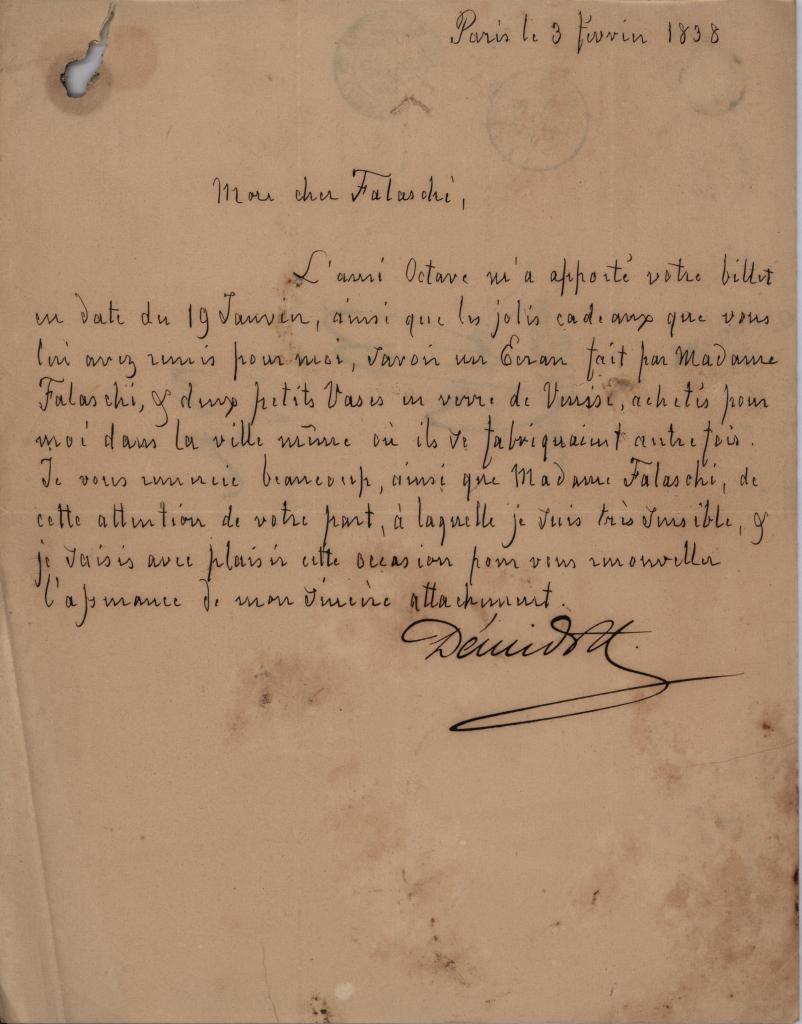 Paris le 3 février 1838
Mon cher Falaschi,
L'ami Octave m'a apporté votre billet
en date du 19 Janvier, ainsi que les jolis cadeaux que vous
lui avez remis pour moi, savoir un Ecran fait par Madame
Falaschi, & deux petits Vases en verre de Venise, achetés pour
moi dans la ville même où ils se fabriquaient autrefois.
Je vous remercie beaucoup, ainsi que Madame Falaschi, de
cette attention de votre part, à laquelle je suis très sensible, &
je saisis avec plaisir cette occasion pour vous renouveller
l'assurance de mon sincère attachement.
Démidoff